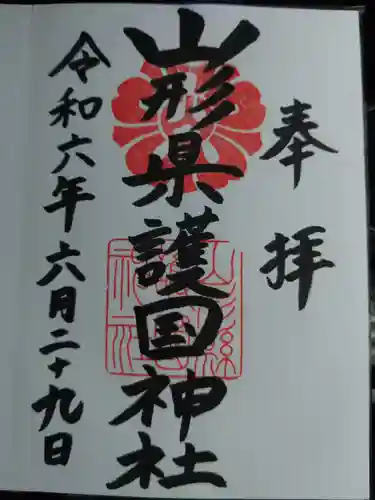 奉拝
山形県護国神社
令和六年六月二十九日